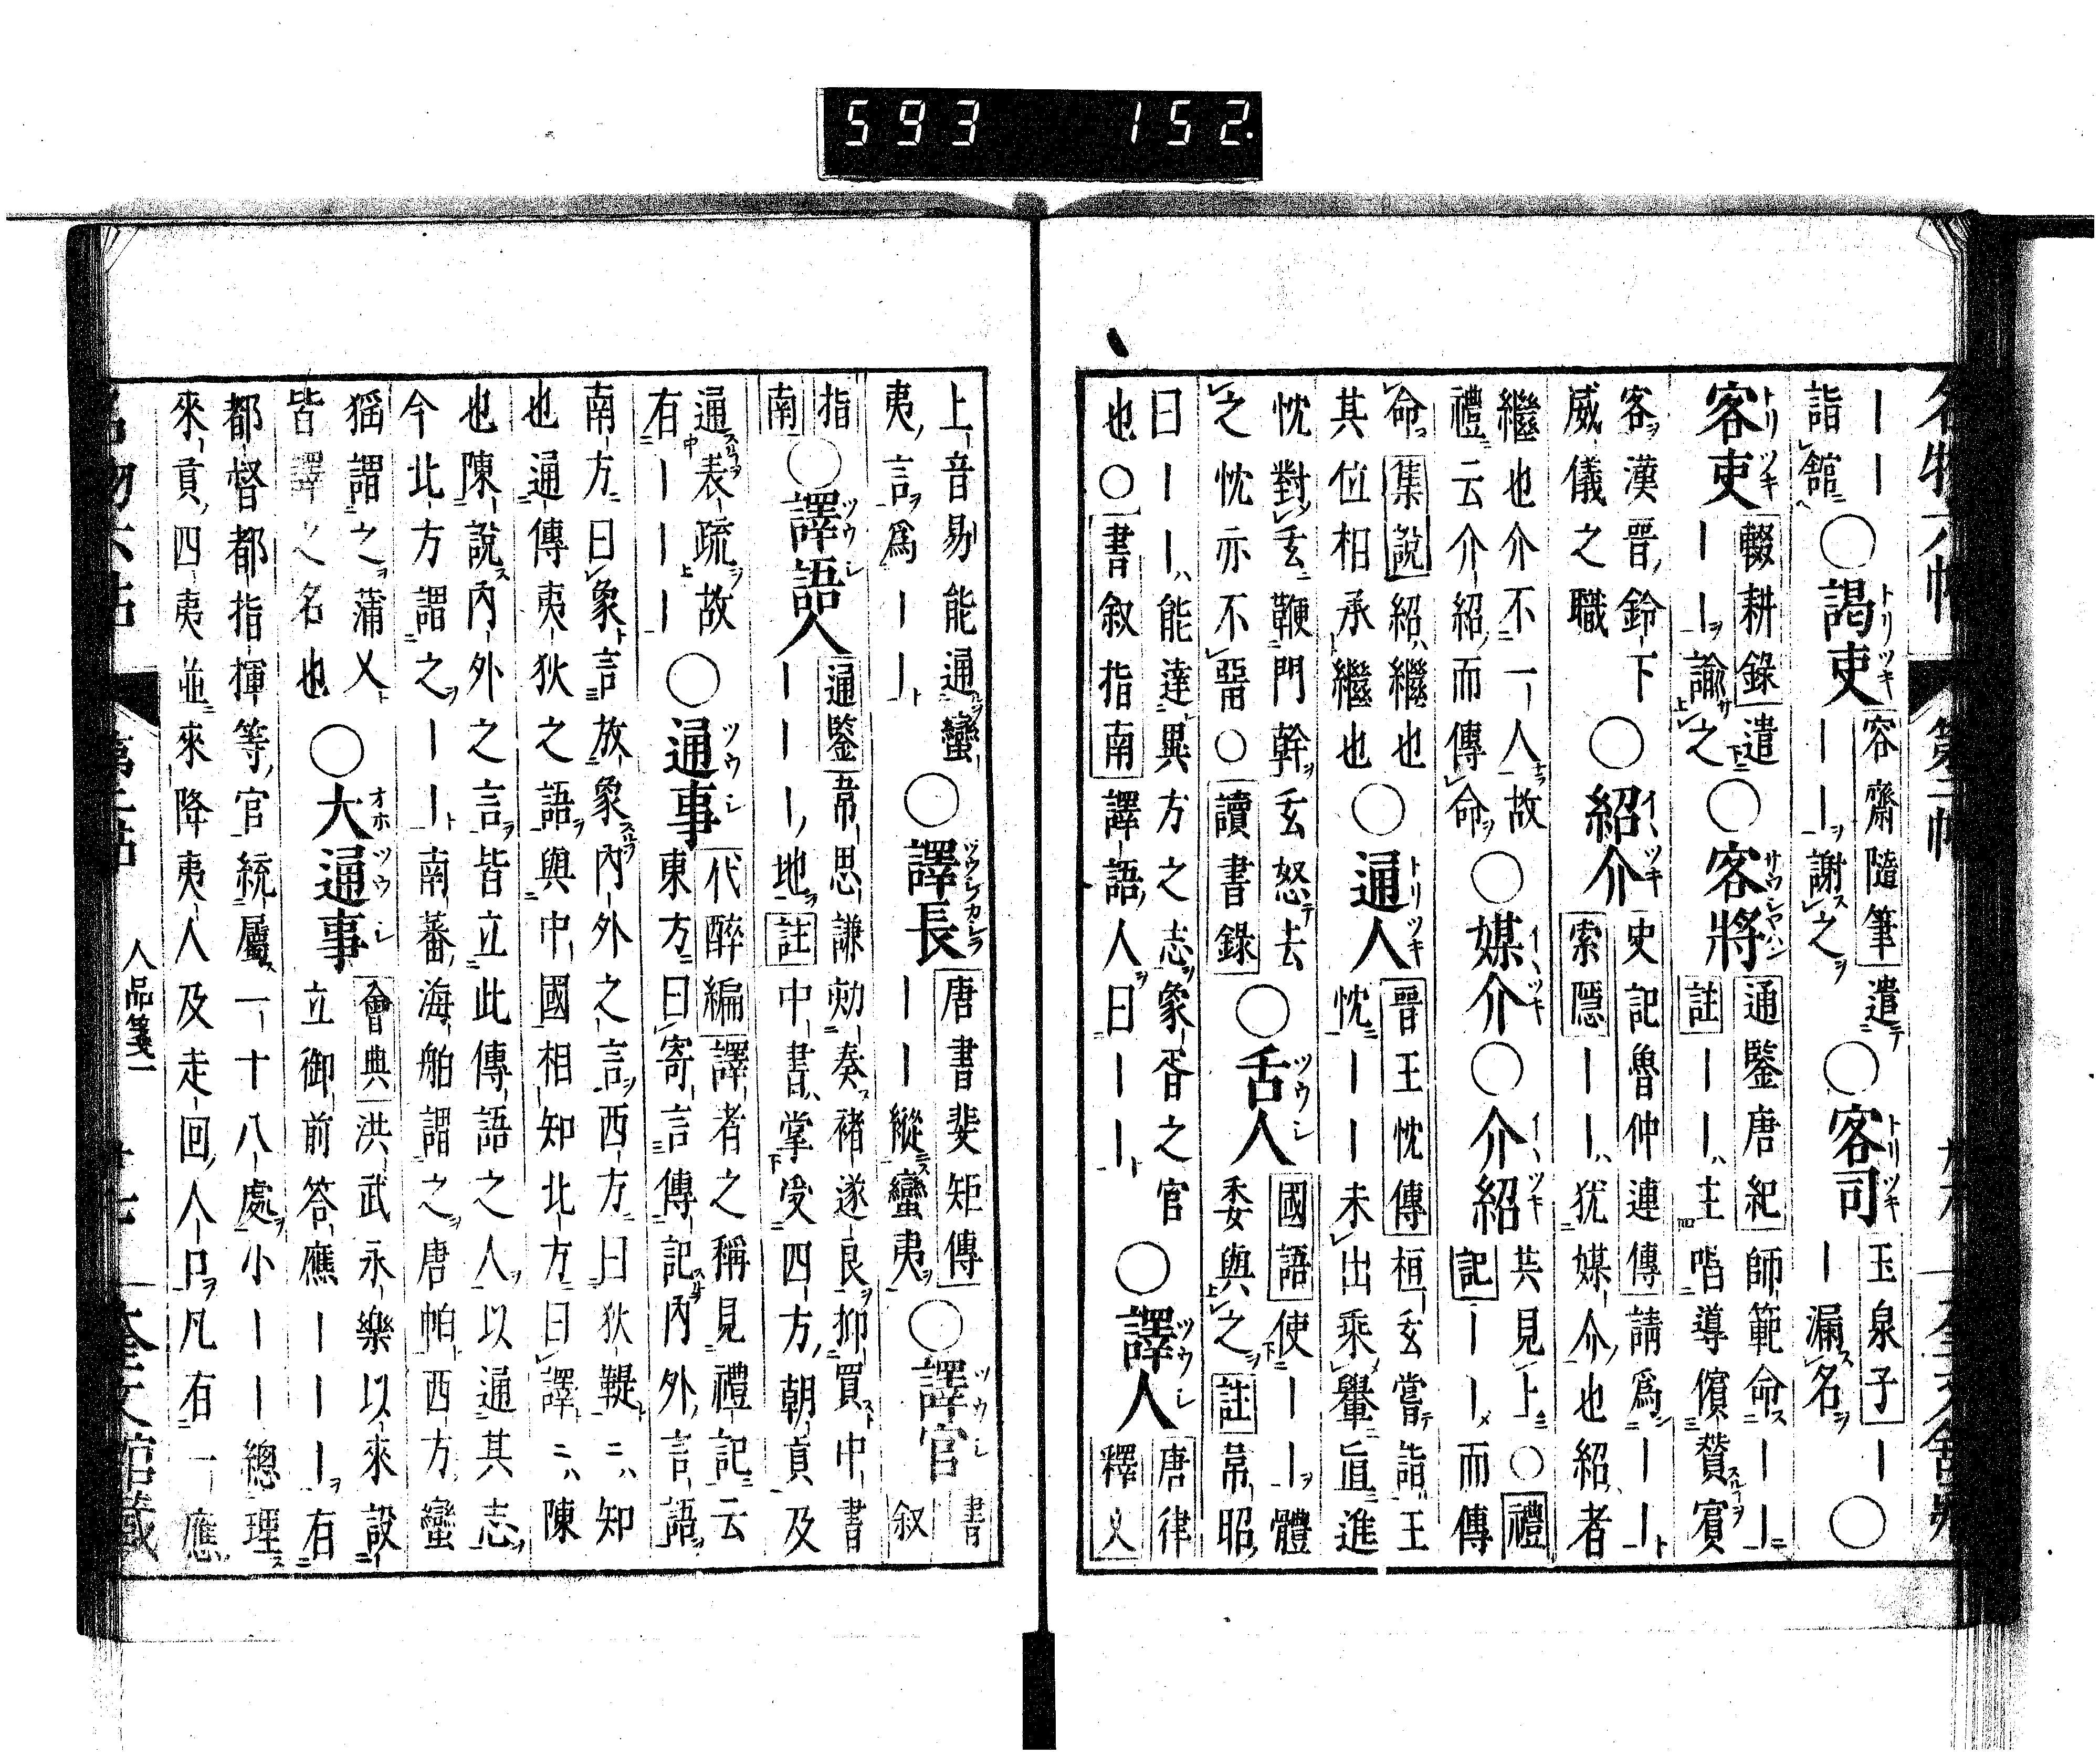 593 152.
名物六帖 第二帖
――○謁吏容齋隨筆遣
詣館――謝之○客司玉泉子―○
客吏輟耕錄遣―漏名
――諭之○客將通鑒唐紀師範命――
客漢晋鈴下註――主唱導儐贊賓
威儀之職○紹介史記魯仲連傳請爲――
索隱――猶媒介也紹者
繼也介不一人故○媒介○介紹共見上○禮
禮云介紹而傳命記――而傳
命集說紹繼也○通人晋王忱傳桓玄嘗詣王
其位相承繼也忱――未出乘轝直進
忱對玄鞭門幹玄怒去○舌人國語使――體
之忱亦不留○讀書錄委與之註韋昭
曰――能達異方之志象胥之官○譯人唐律
也○書叙指南譯語人曰――釋文
上音易能通蠻○譯長唐書裴矩傳○譯官書
夷言爲――――縱蠻夷叙
指○譯語人通鑒韋思謙劾奏褚遂良抑買中書
南―――地註中書掌受四方朝貢及
通表疏故○通事代醉編譯者之稱見禮記云
有―――東方曰寄言傳記内外言語
南方曰象言放象内外之言西方曰狄鞮二知
也通傳夷狄之語與中國相知北方曰譯二陳
也陳說内外之言皆立此傳語之人以通其志
今北方謂之――南蕃海舶謂之唐帕西方蠻
猺謂之蒲乂○大通事會典洪武永樂以來設
皆譯之名也立御前答應―――有
都督都指揮等官統屬一十八處小――總理
來貢四夷並來降夷人及走回人口凡有一應
人品箋一